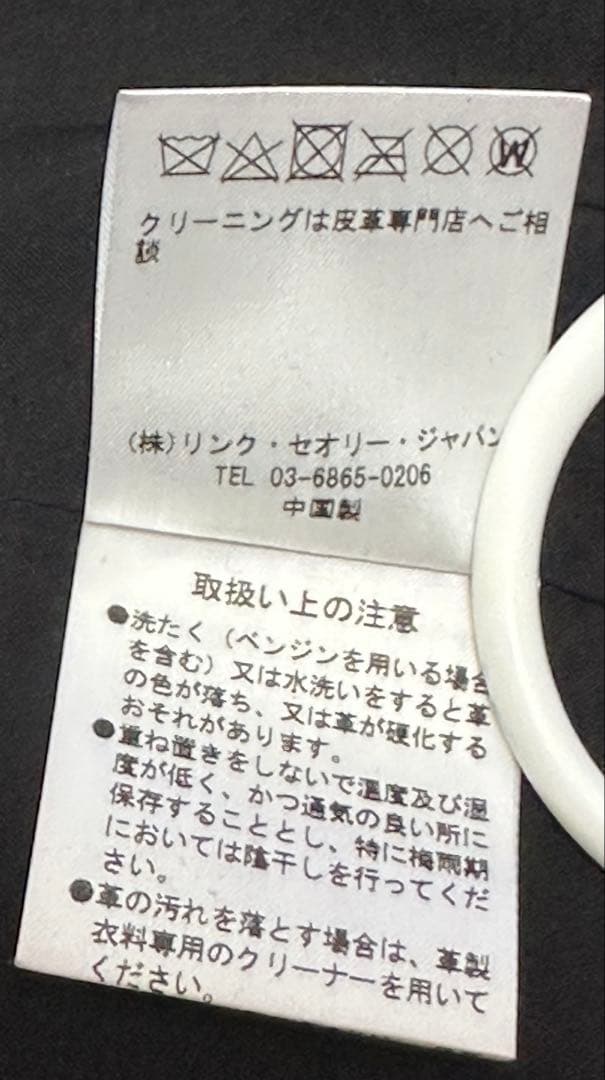 W
クリーニングは皮革専門店へご相
談
(株)リンク・セオリー・ジャパン
TEL 03-6865-0206
中国製
取扱い上の注意
●洗たく(ベンジンを用いる場合
を含む)又は水洗いをすると革
の色が落ち、又は革が硬化する
おそれがあります。
●重ね置きをしないで温度及び湿
度が低く、かつ通気の良い所に
保存することとし、特に梅雨期
においては陰干しを行ってくだ
さい。
●革の汚れを落とす場合は、革製
衣料専用のクリーナーを用いて
ください。